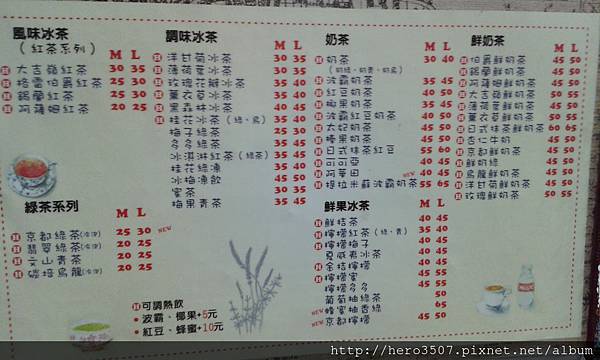 風味冰茶
(紅茶系列)
M L
大吉嶺紅茶 30 35
格雷伯爵紅茶 25 30
錫蘭紅茶 25 30
阿薩姆紅茶 20 25
綠茶系列
M L
京都綠茶(冷沖) 25 30 NEW
翡翠綠茶(冷沖) 20 25
文山青茶 20 25
碳焙烏龍(冷沖) 20 25
調味冰茶
M L
洋甘菊冰茶 30 35
薄荷葉冰茶 30 35
玫瑰花瓣冰茶 30 35
薰衣草冰茶 30 35
黑森林冰茶 40 45
桂花冰茶(綠、烏) 35 40
梅子綠茶 25 30
多多綠茶 35 45
冰淇淋紅茶(綠茶) 35 45
桂花綠凍 35 40
冰梅凍飲 45 50
蜜茶 30 35
梅果青茶 35 45
可調熱飲
• 波霸、椰果+5元
• 紅豆、蜂蜜+10元
奶茶
M L
奶茶 30 40
(奶綠、奶青、奶烏)
波霸奶茶
紅豆奶茶
椰果奶茶
波霸紅豆奶茶
太妃奶茶
榛果奶茶
日式抹茶紅豆 55 60
可可亞 40 45
阿華田 NEW 40 45
提拉米蘇波霸奶茶 55 65
鮮果冰茶
M L
鮮桔茶 40 45
檸檬紅茶(綠、青) 35 40
檸檬梅子 40 45
夏威夷冰茶 40 45
金桔檸檬 40 45
檸檬蜜 45 55
檸檬多多 45 55
葡萄柚綠茶 50
NEW 蜂蜜柚香綠 65
NEW 京都檸檬 40 45
鮮奶茶
M L
伯爵鮮奶茶 45 50
錫蘭鮮奶茶 45 50
大吉嶺鮮奶茶 45 50
薄荷葉鮮奶茶 45 50
薰衣草鮮奶茶 45 50
日式抹茶鮮奶茶 60 65
杏仁牛奶 45 50
京都鮮奶茶 45 50
鮮奶綠 45 50
NEW 烏龍鮮奶茶 45 50
洋甘菊鮮奶茶 45 50
玫瑰鮮奶茶 45 50
http://hero3507.pixnet.net/album